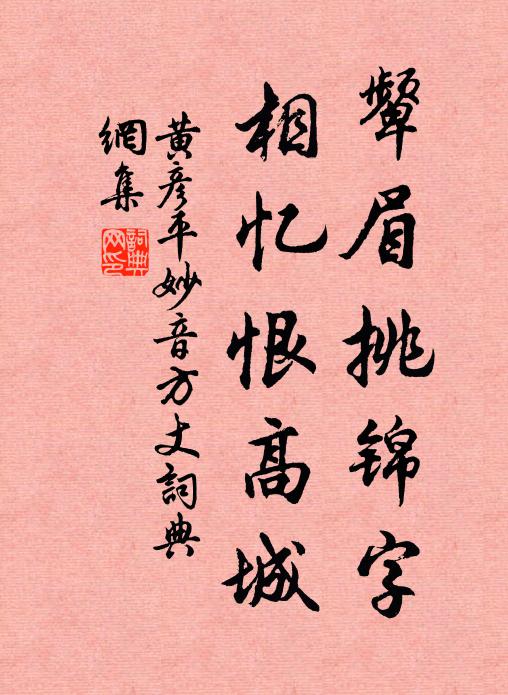 颦眉挑锦字
相忆恨高城
黄彦平妙音方丈詞典
網集
詞典網印